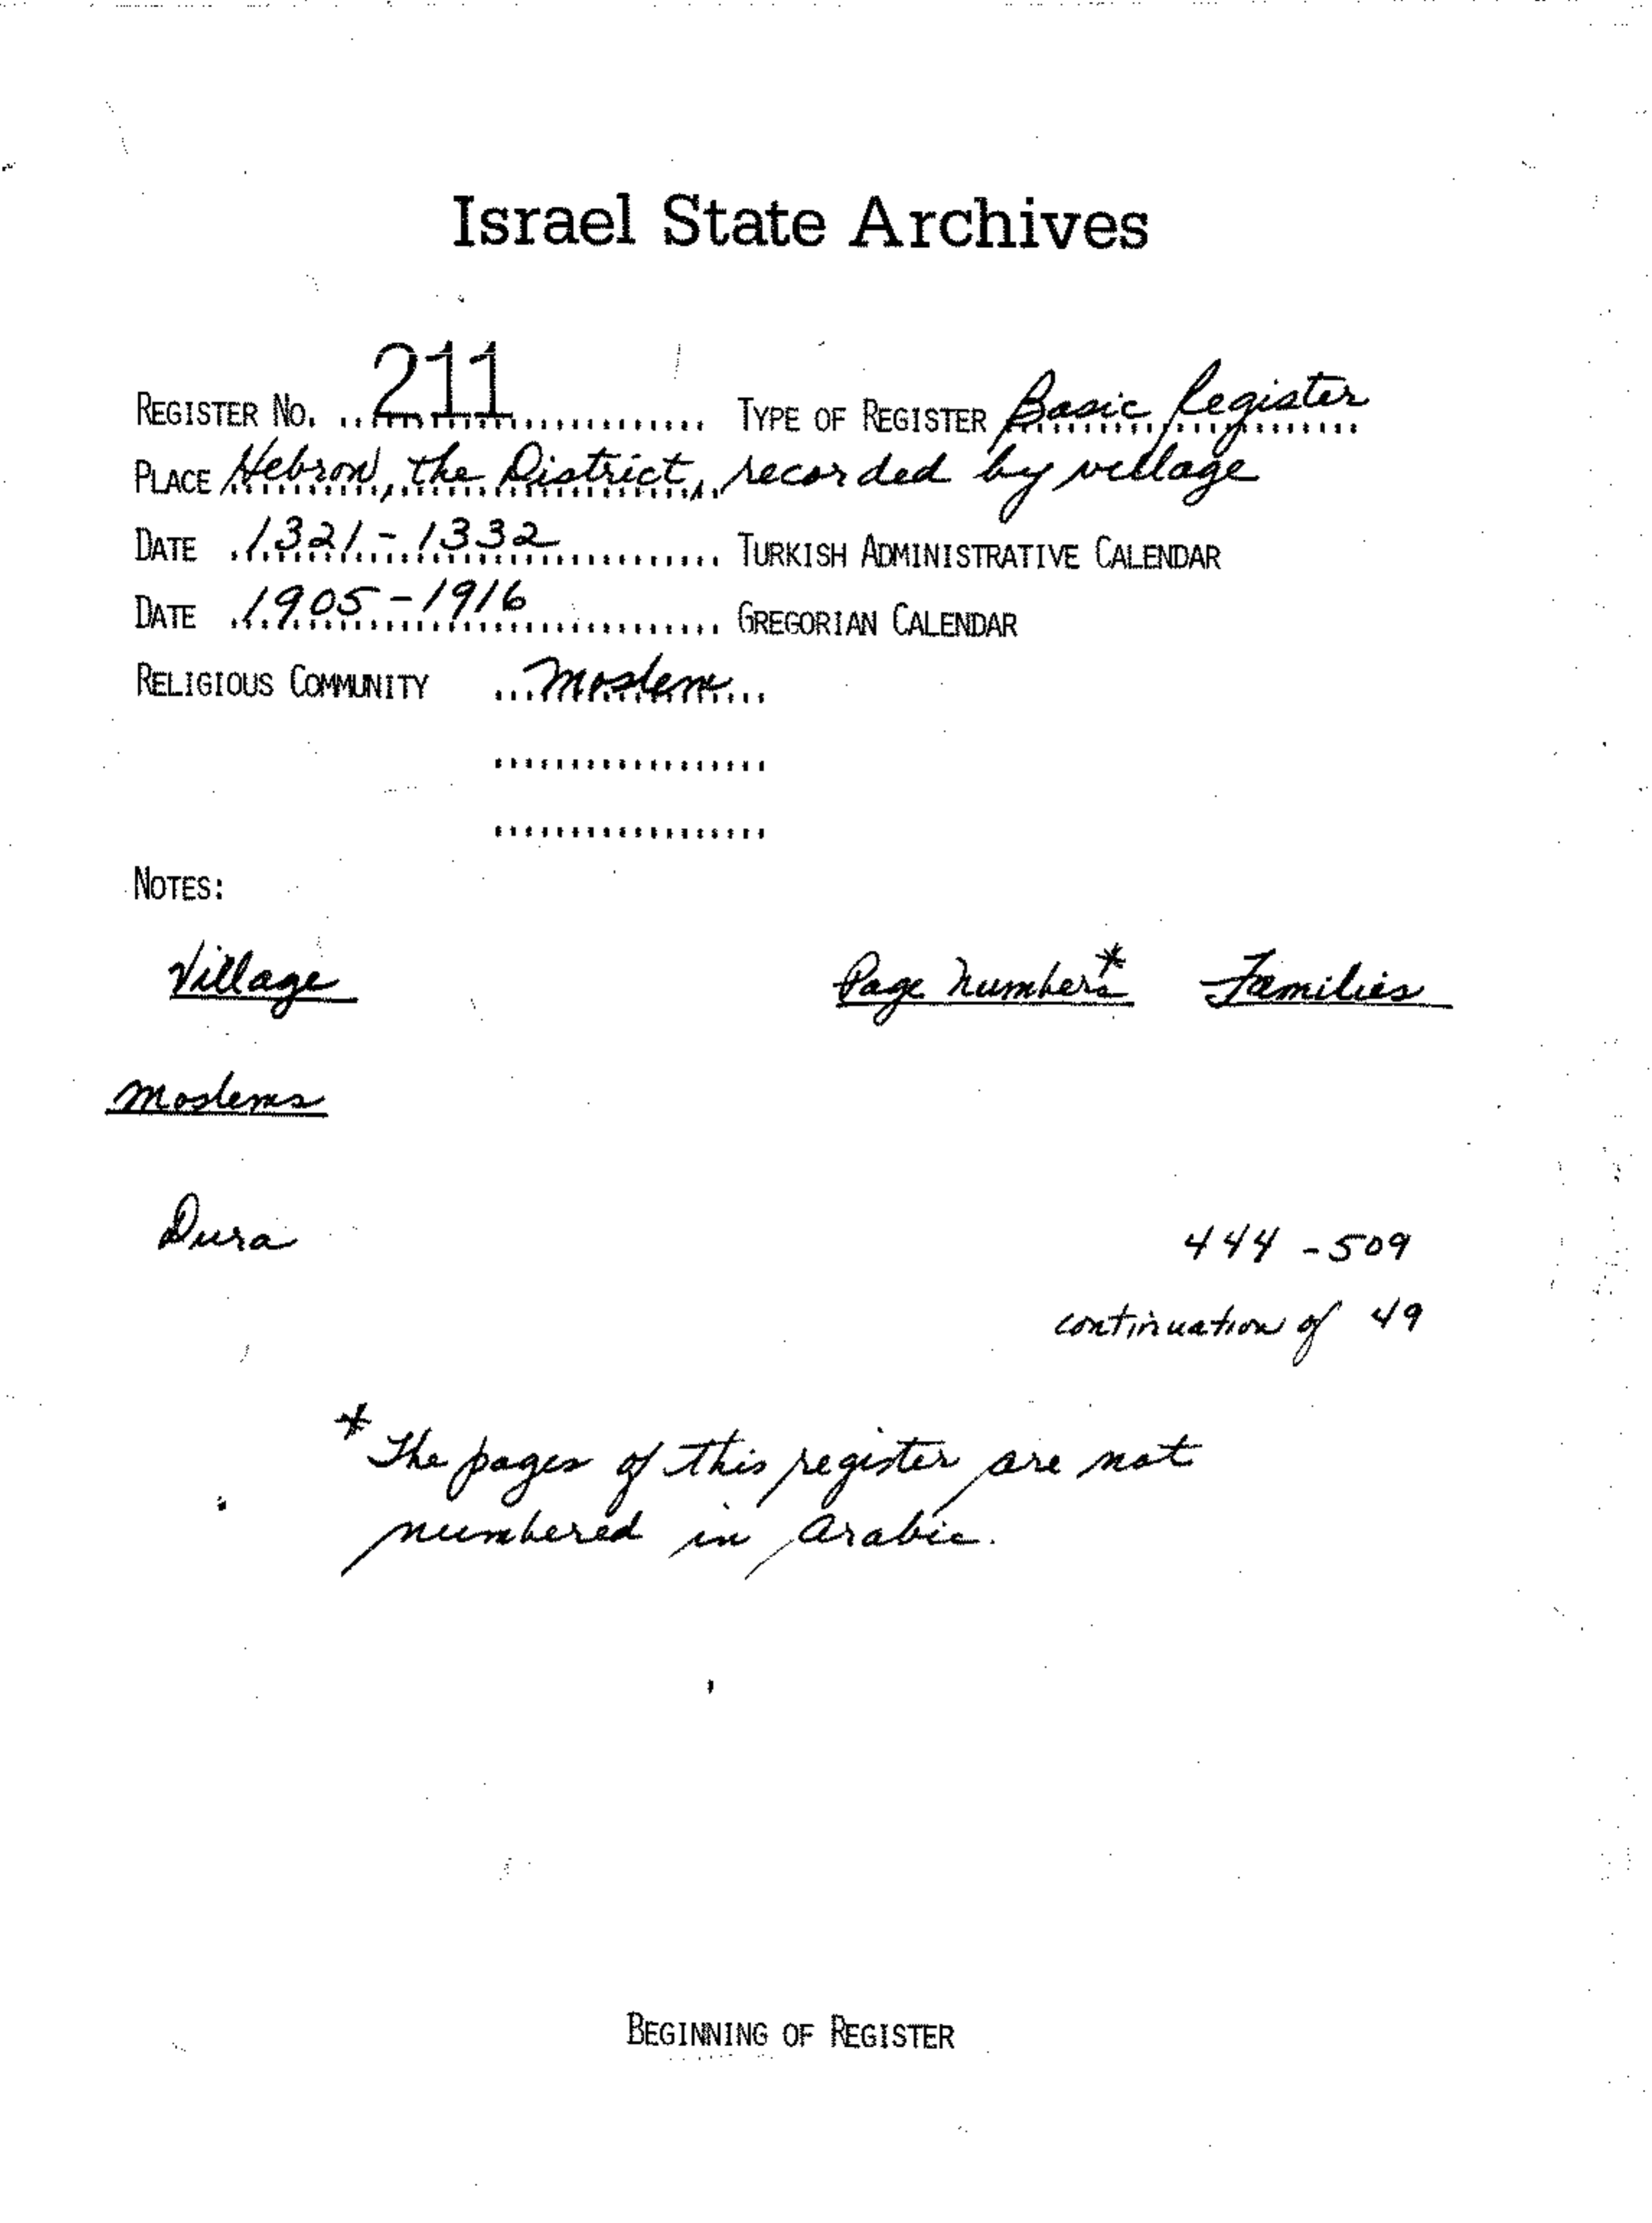 Israel State Archives
REGISTER NO. 211 TYPE OF REGISTER Basic Register
PLACE Hebron, the District, recorded by village
DATE 1321-1332 TURKISH ADMINISTRATIVE CALENDAR
DATE 1905-1916 GREGORIAN CALENDAR
RELIGIOUS COMMUNITY Moslem
NOTES:
Village Page Numbers* Families
Moslems
Dura 444-509
continuation of 49
* The pages of this register are not
numbered in Arabic.
BEGINNING OF REGISTER